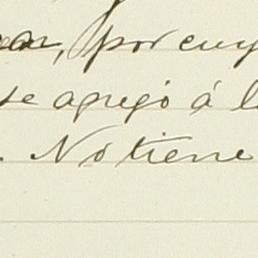 , por cuy
se agregó á l
. No tiene